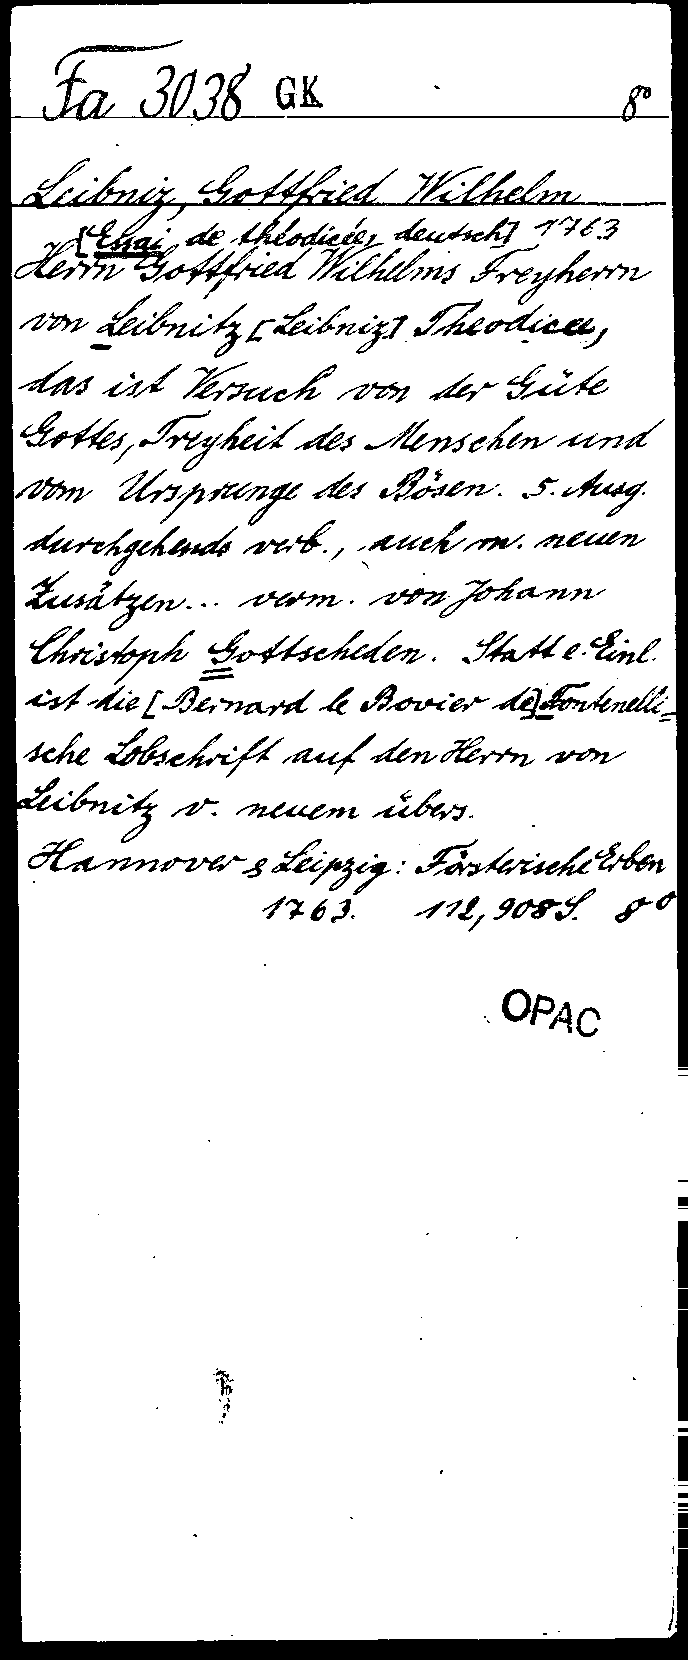 Fa 3038 GK 8°
Leibniz, Gottfried Wilhelm
[Essai de théodicée, deutsch] 1763
Herrn Gottfried Wilhelms Freyherrn
von Leibnitz [Leibniz] Theodicee,
das ist Versuch von der Güte
Gottes, Freyheit des Menschen und
vom Ursprunge des Bösen. 5. Ausg.
durchgehends verb., auch m. neuen
Zusätzen... verm. von Johann
Christoph Gottscheden. Statt e. Einl.
ist die [Bernard le Bovier de] Fontenelli=
sche Lobschrift auf den Herrn von
Leibnitz v. neuem übers.
Hannover & Leipzig: Försterische Erben
1763. 112, 908 S. 8°
OPAC